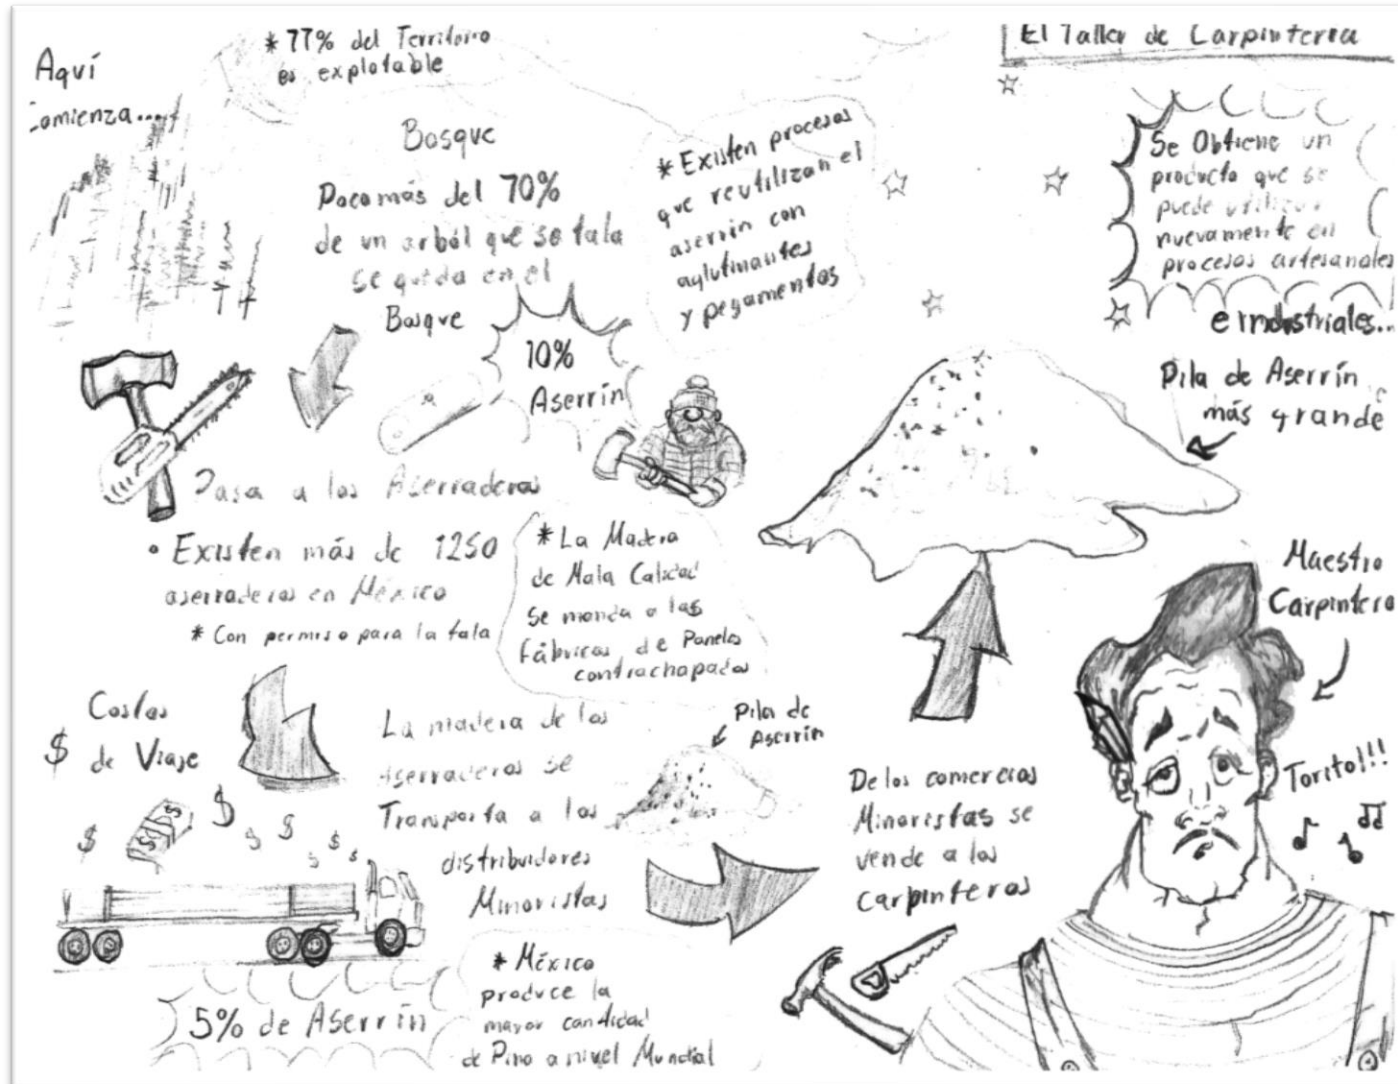 Aquí
comienza....
* 77% del Territorio
es explotable
Bosque
Poco más del 70%
de un arból que se tala
se queda en el
Bosque
* Existen procesos
que reutilizan el
aserrín con
aglutinantes
y pegamentos
El Taller de Carpinterra
Se Obtiene un
producto que se
puede utilizar
nuevamente en
procesos artesanales
e industriales...
10%
Aserrín
Pila de Aserrín
más grande
Pasa a los Aserraderos
• Existen más de 1250
aserraderos en México
* Con permiso para la tala
* La Madera
de Mala Calidad
se manda a las
Fábricas de Paneles
contrachapados
Maestro
Carpintero
Costos
$ de Viaje
$ $ $ $ $ $ $
La madera de los
Aserraderos se
Transporta a los
distribuidores
Minoristas
Pila de
Aserrín
De los comercios
Minoristas se
vende a los
Carpinteros
Torito!!!
5% de Aserrín
* México
produce la
mayor cantidad
de Pino a nivel Mundial